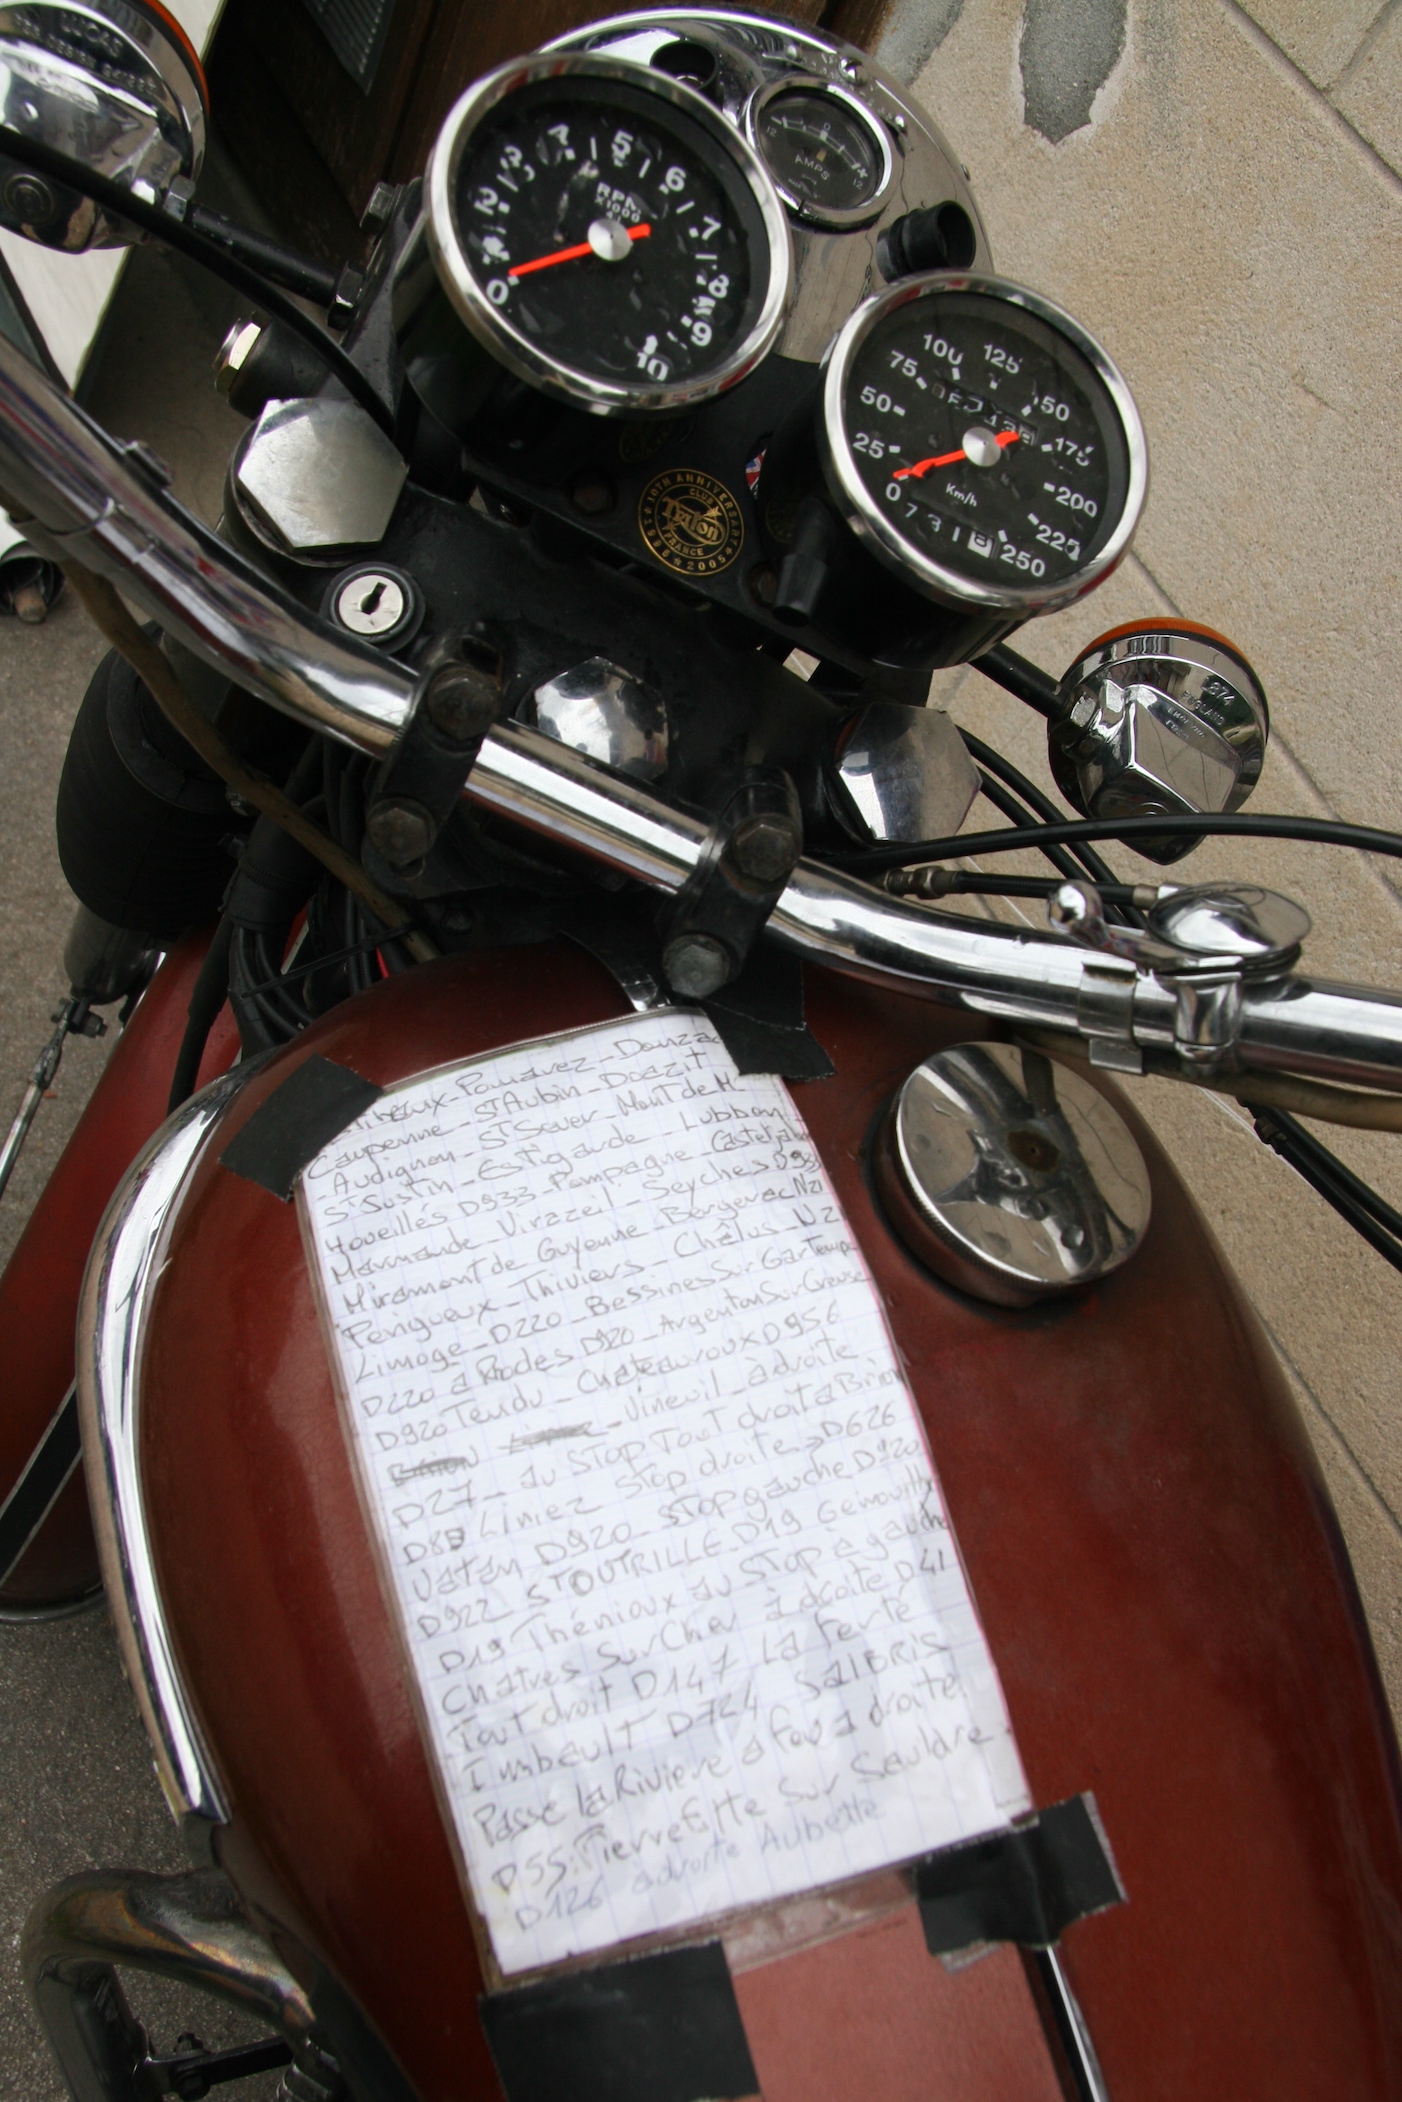 LUCAS
0
2
3
5
6
7
8
9
10
RPM
X1000
12 0 12
AMPS
0
25
50
75
100
125
150
175
200
225
250
Km/h
7 3 1 8
10TH ANNIVERSARY
CLUB
Triton
FRANCE
1995 ★ 2005
874
ENGLAND
Pomarez - Donzac
Caupenne - St Aubin - Doazit
- Audignon - St Sever - Mont de M
St Justin - Estigarde - Lubbon
Houeillés D933 - Pompogne - Castelja
Marmande - Virazeil - Seyches D933
Miramont de Guyenne - Bergerac N21
Périgueux - Thiviers - Châlus - N21
Limoge - D220 - Bessines Sur Gartempe
D220 à Rhodes D920 - Argenton Sur Creuse
D920 Tendu - Chateauroux D956
- Vineuil - à droite
D27 - au STOP Tout droit à Brion
D8 Liniez STOP droite → D626
Vatan D920 - STOP gauche D920
D922 ST OUTRILLE - D19 Genouilly
D19 Thénioux au STOP à gauche
Chatres Sur Cher à droite D41
Tout droit D147 La Ferté
Imbault D724 SalBRIS
Passé la Rivière à feu à droite
D55: Pierrefitte Sur Sauldre
D126 à droite Aubette